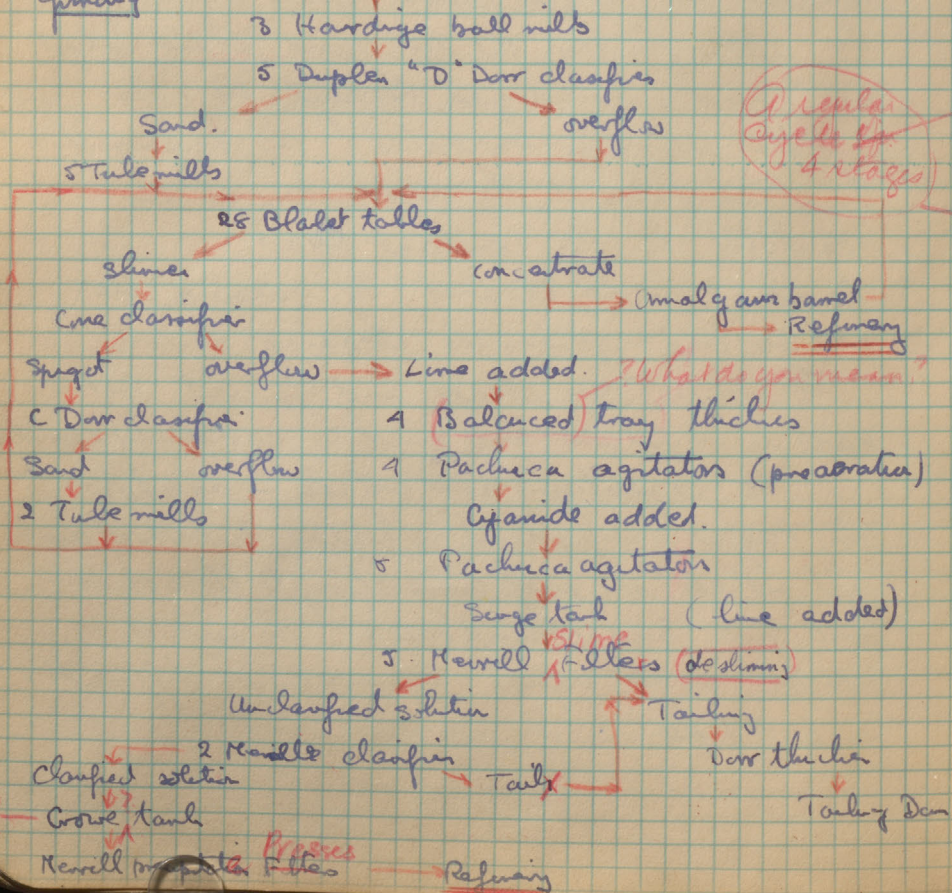 3 Hardige ball mills
5 Duplex "D" Dorr classifiers
Sand.
overflow
A regular
Cycle of
4 stages
5 Tube mills
28 Blaket tables
Slimes
concentrate
Amalgam barrel
Refinery
Cone classifier
Spigot
overflow
Lime added.
? What do you mean?
C Dorr classifier
4 (Balanced) tray thickes
Sand
overflow
4 Pachuca agitators (preaeration)
2 Tube mills
Cyanide added.
Pachuca agitators
Surge tank (lime added)
Slime
5 Merrill Filters (desliming)
Unclarified solution
Tailing
2 Merrills clarifier
Dorr thicker
Clarified solution
Tails
Crowe tank
?
Tailing Dam
Presses
Merrill precipitation Filters
Refinery